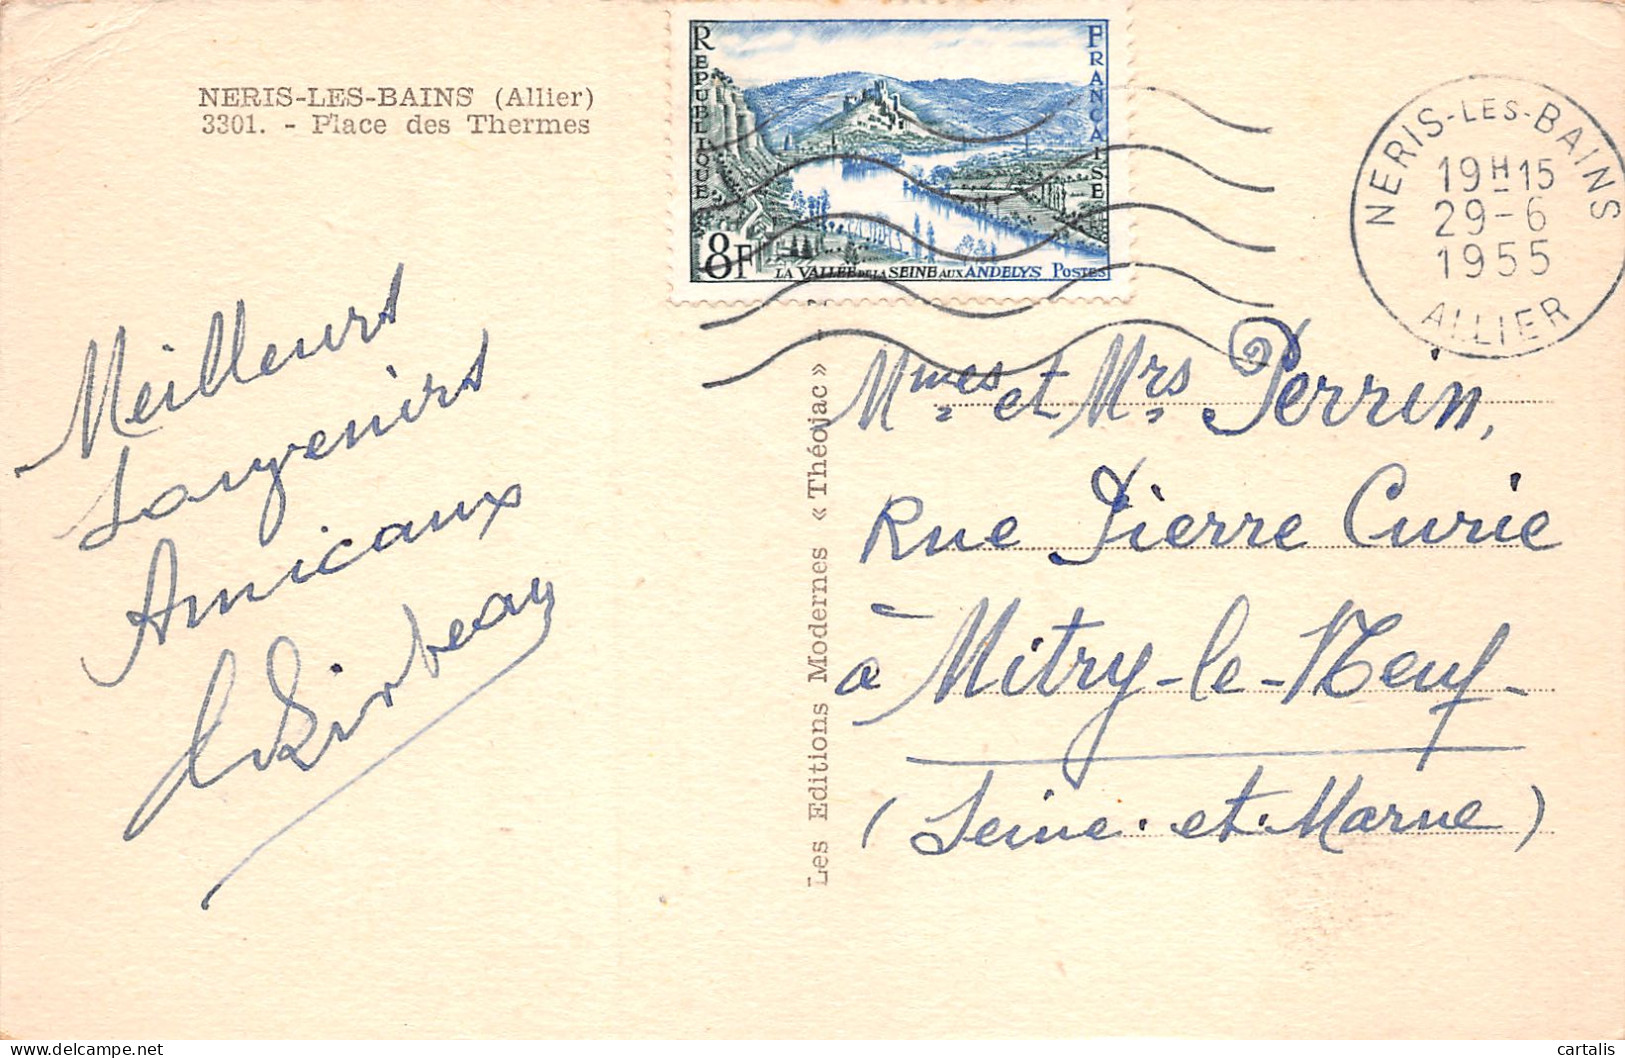 NERIS-LES-BAINS (Allier)
3301. - Place des Thermes
REPUBLIQUE
FRANÇAISE
8F
LA VALLÉE DE LA SEINE AUX ANDELYS POSTES
NERIS-LES-BAINS
19H15
29-6
1955
ALLIER
Meilleurs
Souvenirs
Amicaux
Les Editions Modernes « Théojac »
Mmes et Mrs Perrin,
Rue Pierre Curie
à Mitry-le-Neuf
(Seine-et-Marne)
cartalis
delcampe.net